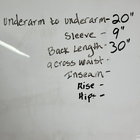 underarm to underarm- 20"
Sleeve - 9"
Back Length- 30"
across waist-
Inseam-
Rise -
Hip- -